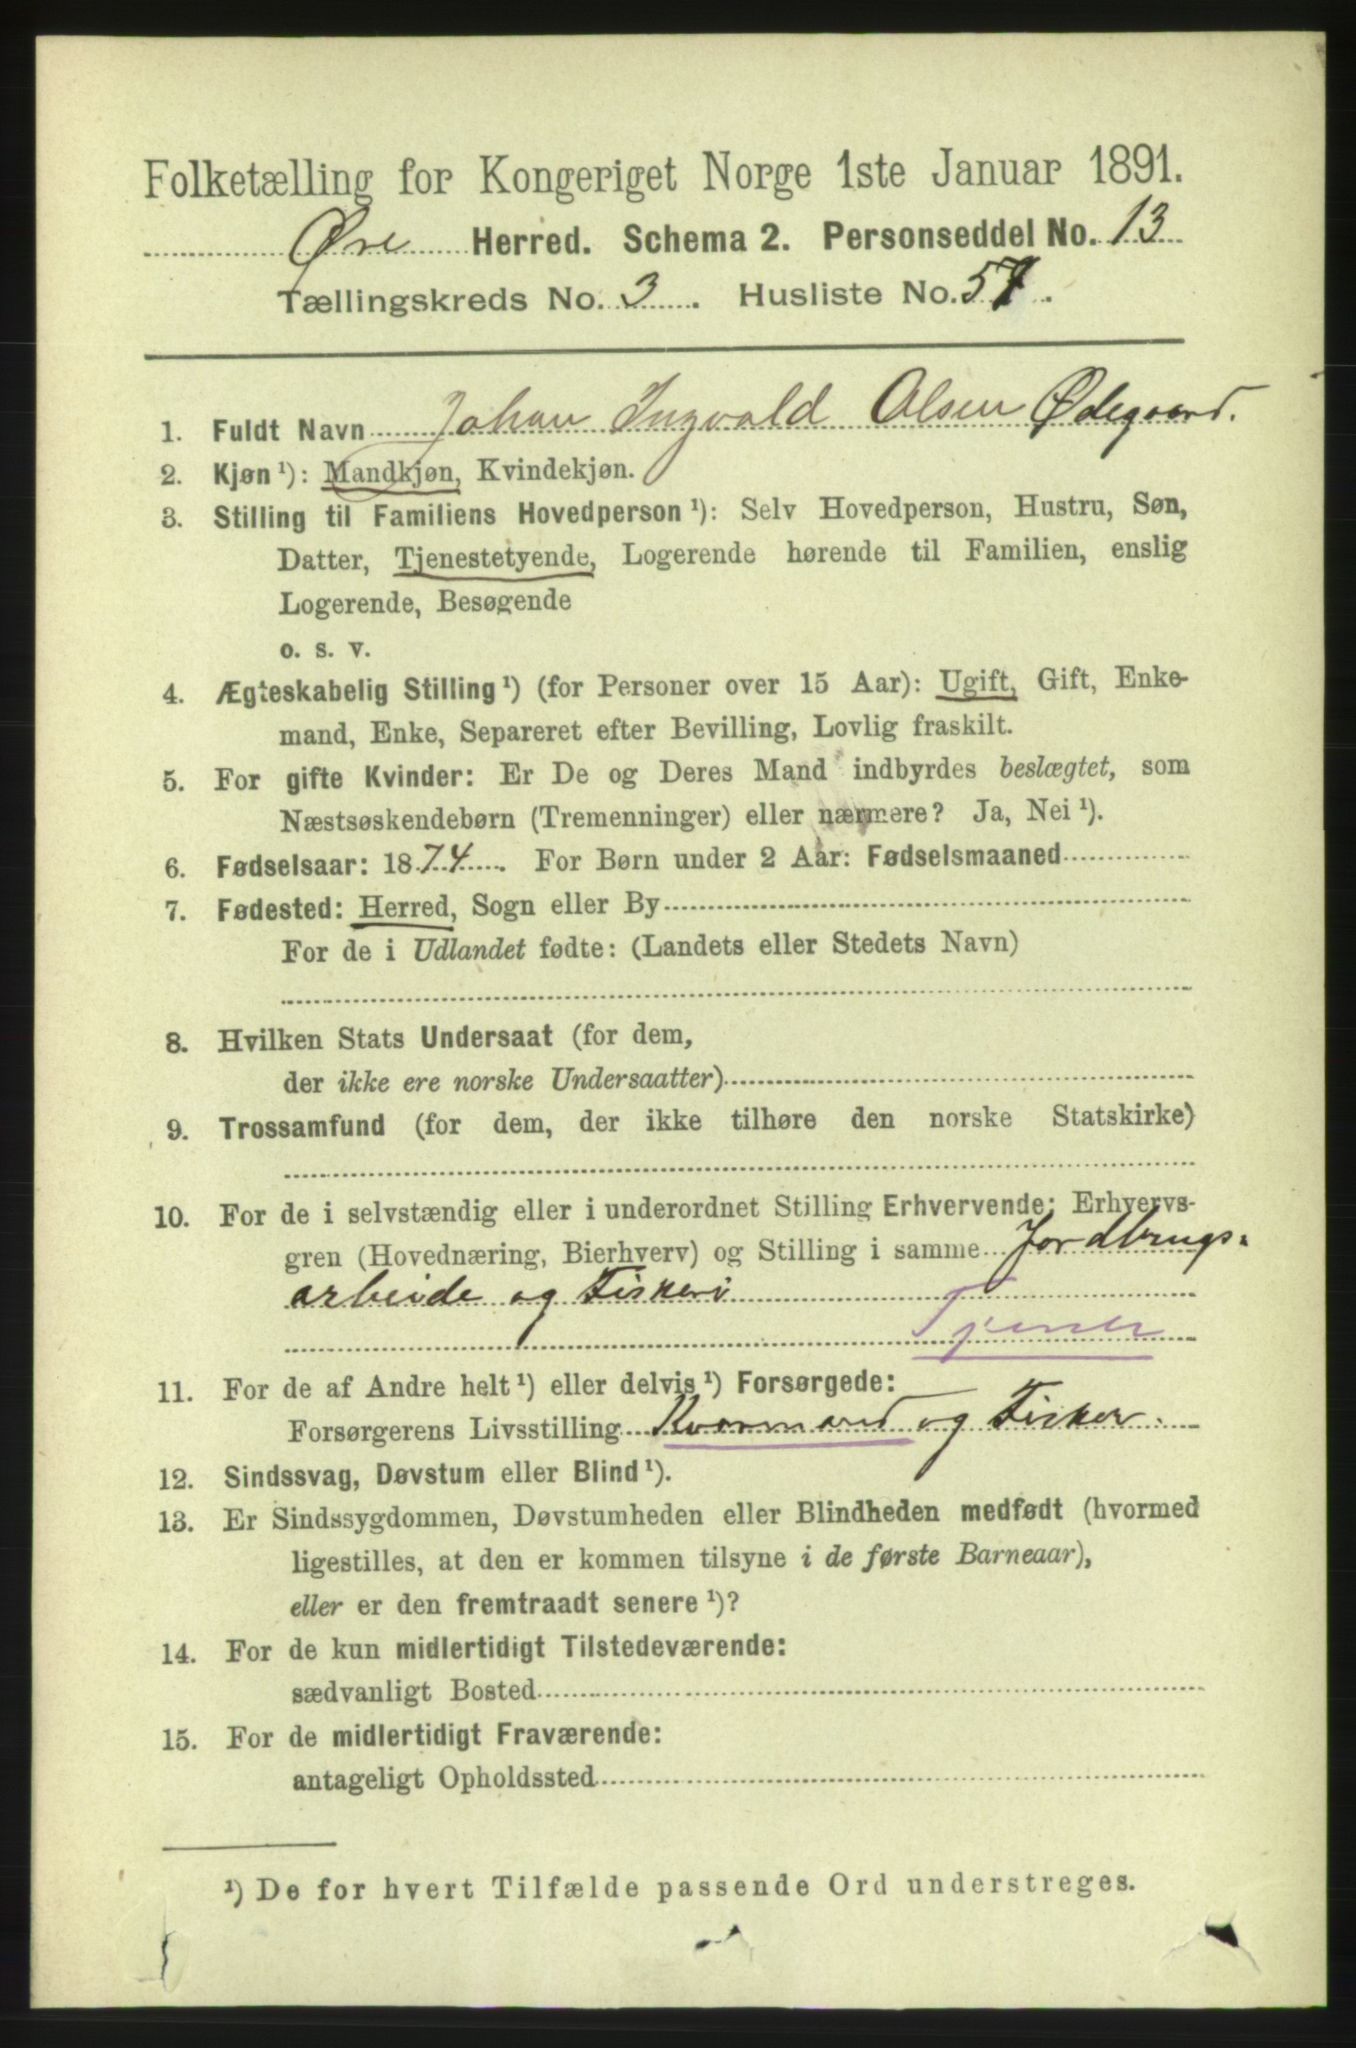 Folketælling for Kongeriget Norge 1ste Januar 1891.
Øre Herred. Schema 2. Personseddel No. 13
Tællingskreds No. 3. Husliste No. 57.
1. Fuldt Navn Johan Ingvald Olsen Ødegaard.
2. Kjøn ¹): Mandkjøn, Kvindekjøn.
3. Stilling til Familiens Hovedperson ¹): Selv Hovedperson, Hustru, Søn,
Datter, Tjenestetyende, Logerende hørende til Familien, enslig
Logerende, Besøgende
o. s. v.
4. Ægteskabelig Stilling ¹) (for Personer over 15 Aar): Ugift, Gift, Enke-
mand, Enke, Separeret efter Bevilling, Lovlig fraskilt.
5. For gifte Kvinder: Er De og Deres Mand indbyrdes beslægtet, som
Næstsøskendebørn (Tremenninger) eller nærmere? Ja, Nei ¹).
6. Fødselsaar: 1874. For Børn under 2 Aar: Fødselsmaaned
7. Fødested: Herred, Sogn eller By
For de i Udlandet fødte: (Landets eller Stedets Navn)
8. Hvilken Stats Undersaat (for dem,
der ikke ere norske Undersaatter)
9. Trossamfund (for dem, der ikke tilhøre den norske Statskirke)
10. For de i selvstændig eller i underordnet Stilling Erhvervende: Erhvervs-
gren (Hovednæring, Bierhverv) og Stilling i samme Jordbrugs-
arbeide og Fiskeri
Tjener
11. For de af Andre helt ¹) eller delvis ¹) Forsørgede:
Forsørgerens Livsstilling og Fisker.
12. Sindssvag, Døvstum eller Blind ¹).
13. Er Sindssygdommen, Døvstumheden eller Blindheden medfødt (hvormed
ligestilles, at den er kommen tilsyne i de første Barneaar),
eller er den fremtraadt senere ¹)?
14. For de kun midlertidigt Tilstedeværende:
sædvanligt Bosted
15. For de midlertidigt Fraværende:
antageligt Opholdssted
¹) De for hvert Tilfælde passende Ord understreges.